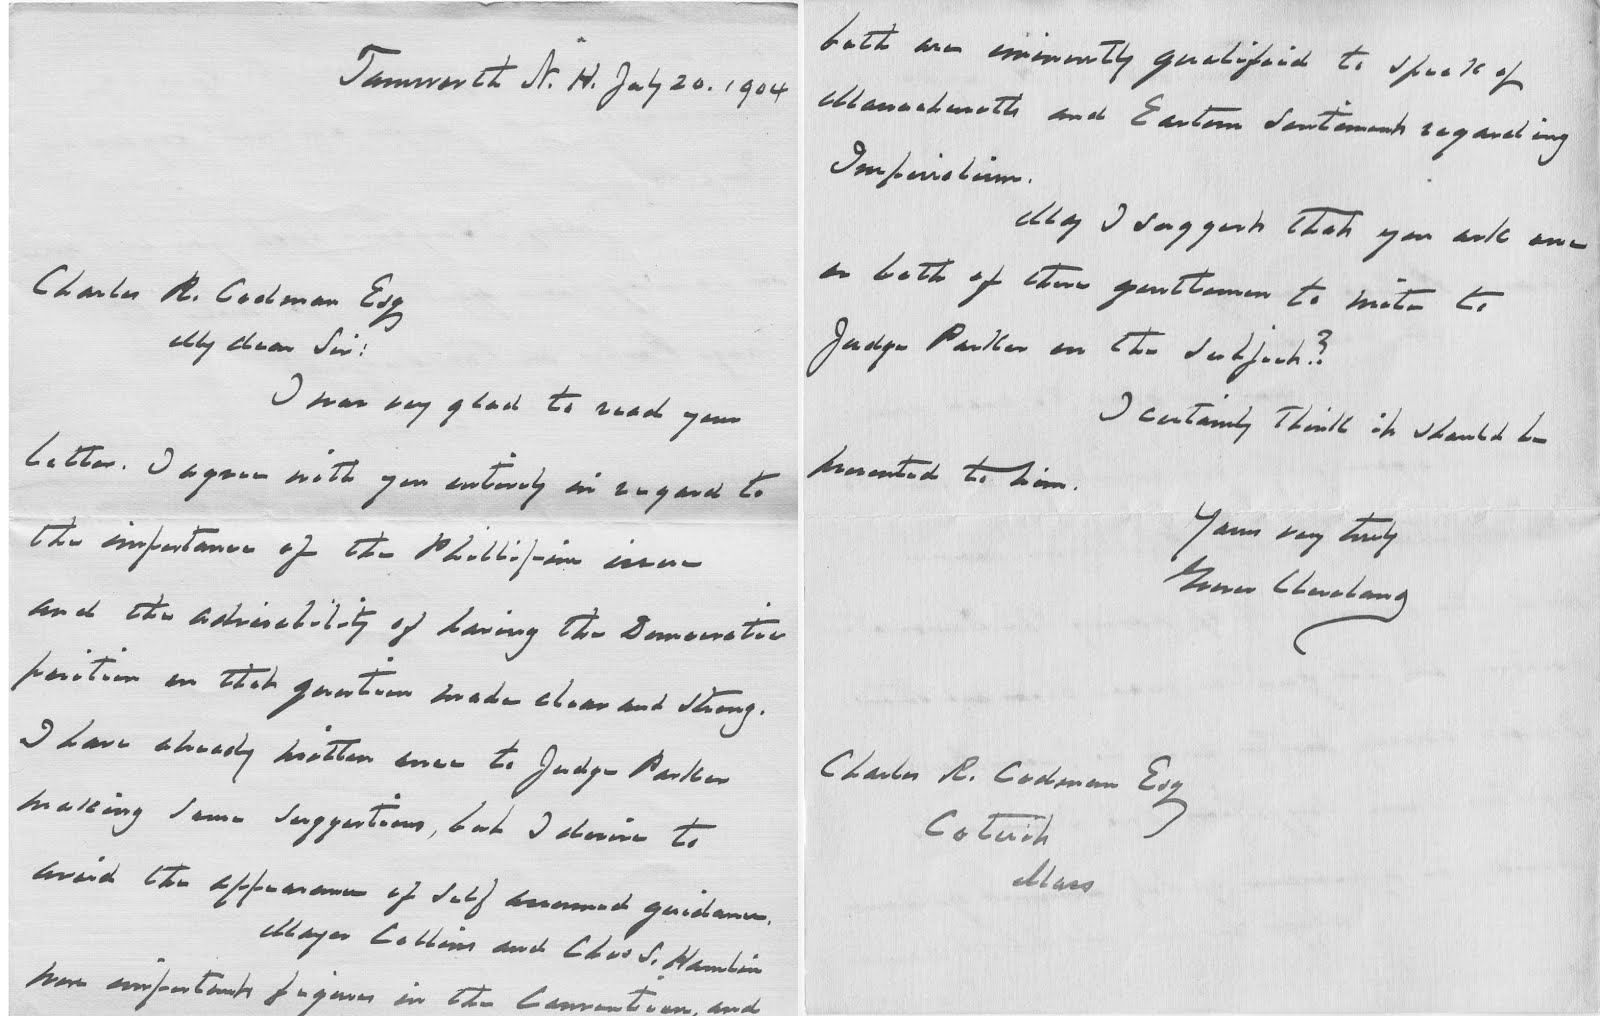 Tamworth N. H. July 20. 1904
Charles R. Codman Esq
My dear Sir:
I was very glad to read your
letter. I agree with you entirely in regard to
the importance of the Phillipine issue
and the advisability of having the Democratic
position on that question made clear and strong.
I have already written once to Judge Parker
making some suggestions, but I desire to
avoid the appearance of self assumed guidance.
Mayor Collins and Chas S. Hamlin
were important figures in the Convention, and
both are eminently qualified to speak of
Massachusetts and Eastern Sentiment regarding
Imperialism.
May I suggest that you ask one
or both of these gentlemen to write to
Judge Parker on the subject?
I certainly think it should be
presented to him.
Yours very truly
Grover Cleveland
Charles R. Codman Esq
Cotuit
Mass